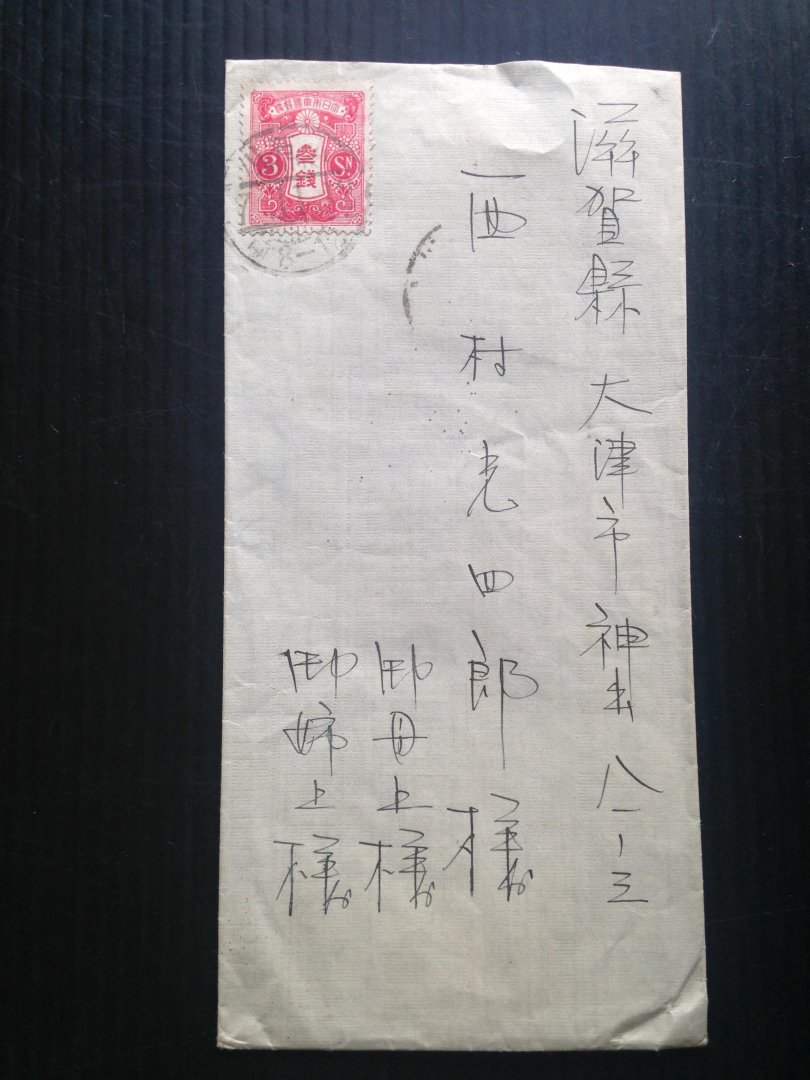 滋賀縣大津市神出八一ー三
西村光四郎様
御母上様
御姉上様
大日本帝國郵便
参銭
3 Sn